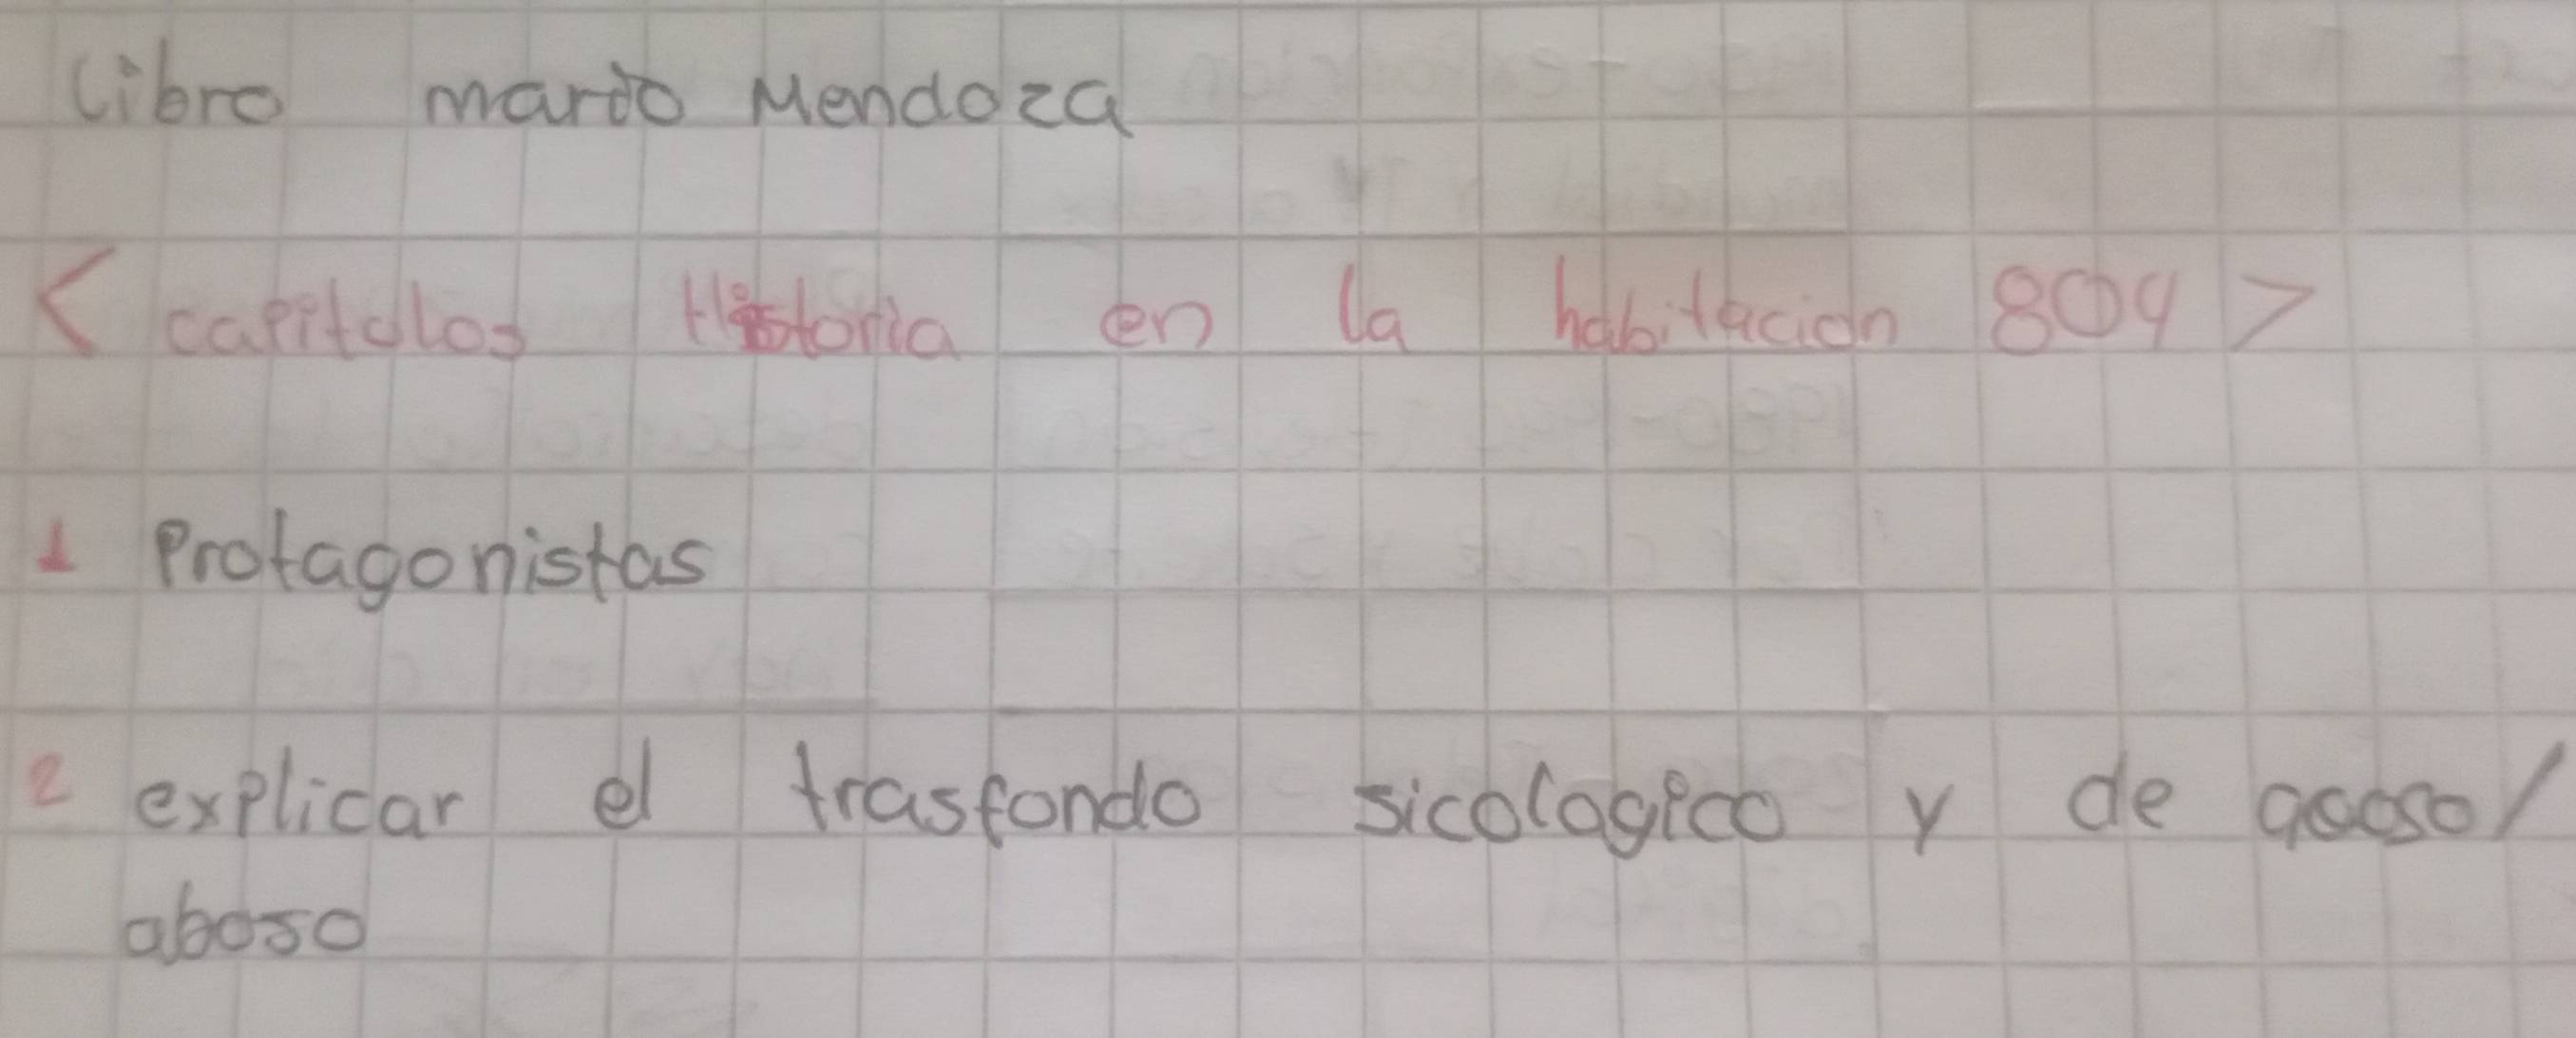 Libro mario Mendoza
< capitulos Historia en la habitacion 804 >
1 Protagonistas
2 explicar el trasfondo sicologico y de acoso/
aboso